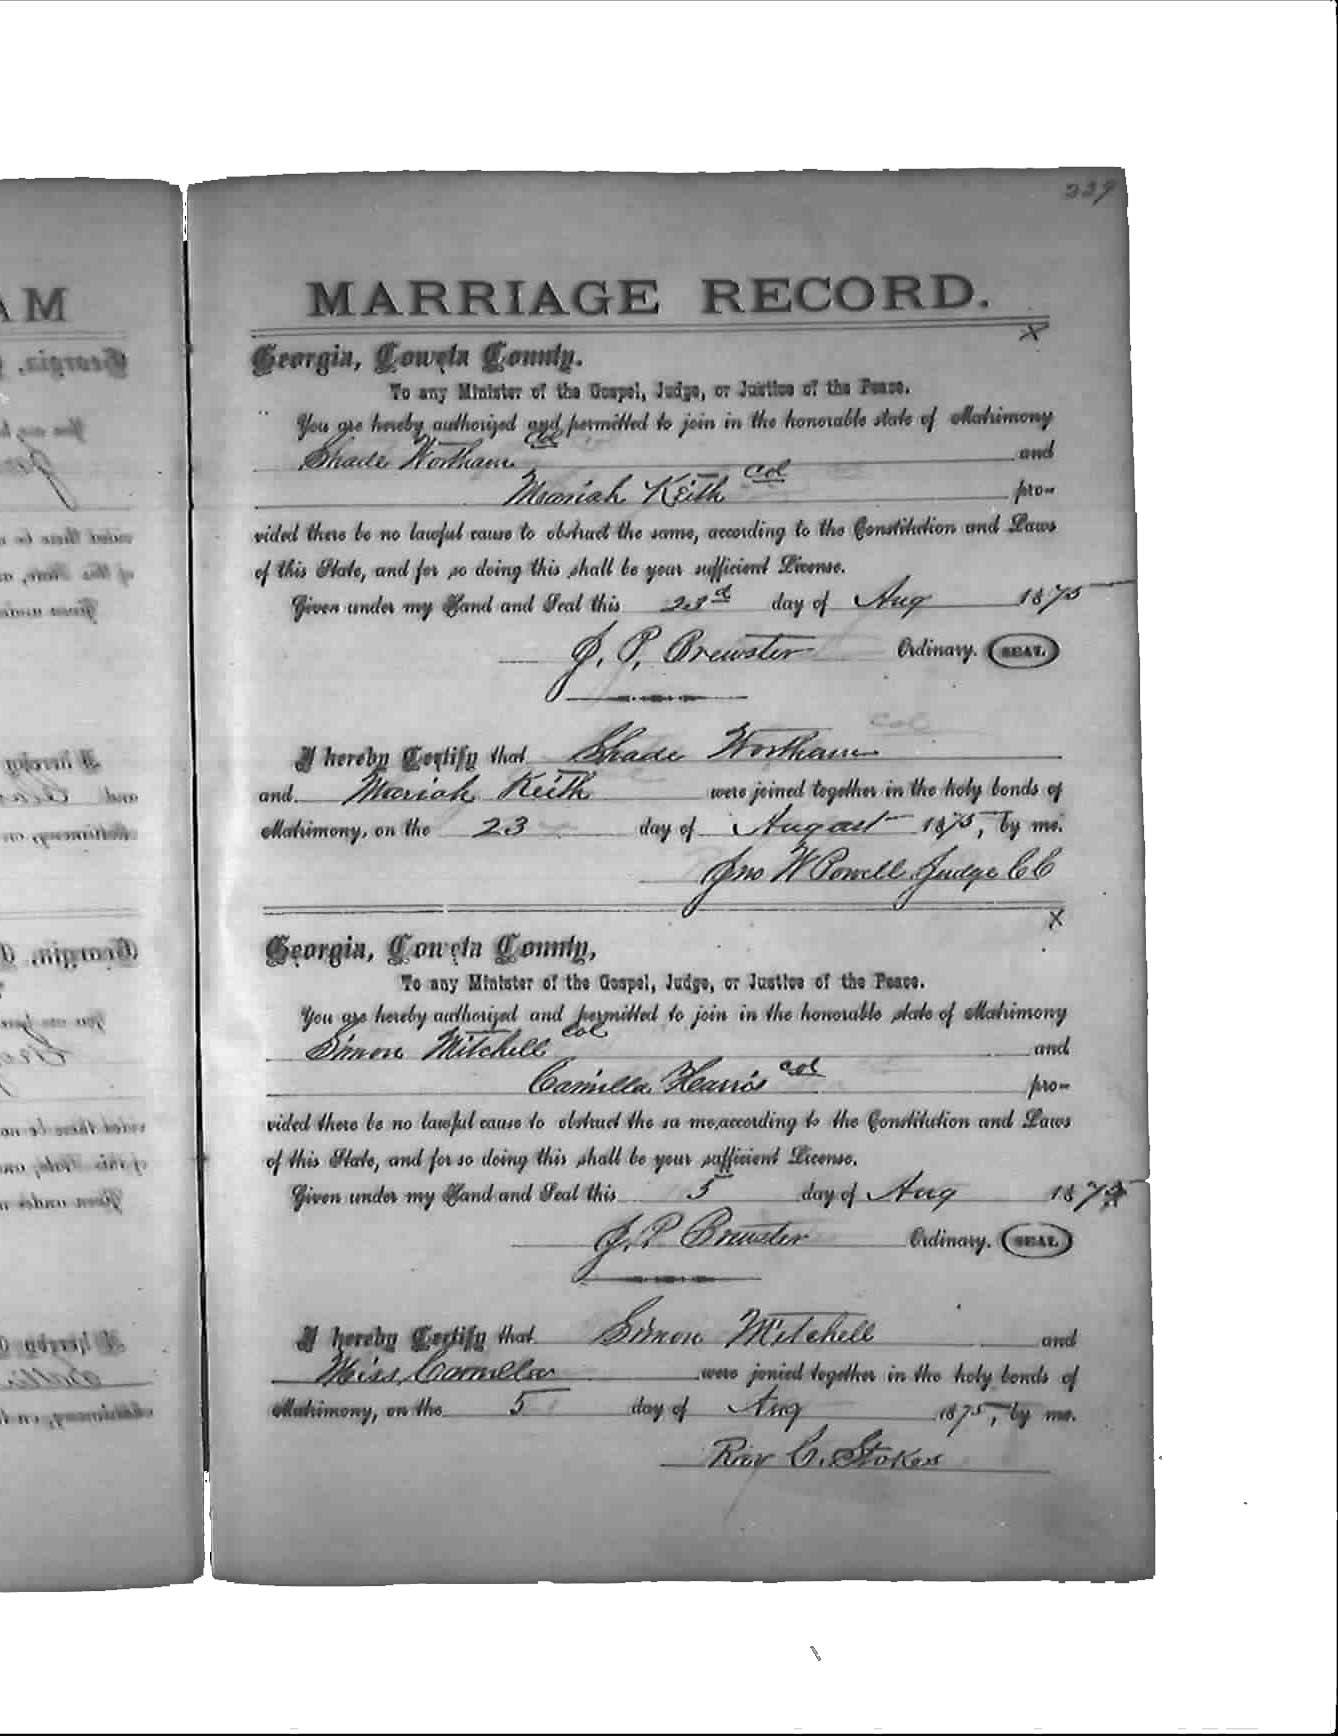 239
MARRIAGE RECORD.
x
Georgia, Coweta County.
To any Minister of the Gospel, Judge, or Justice of the Peace.
You are hereby authorized and permitted to join in the honorable state of Matrimony
Shade Wortham Col and
Mariah Keith Col pro-
vided there be no lawful cause to obstruct the same, according to the Constitution and Laws
of this State, and for so doing this shall be your sufficient License.
Given under my Hand and Seal this 23d day of Aug 1875
J. P. Brewster Ordinary. SEAL.
col
I hereby Certify that Shade Wortham
and Mariah Keith were joined together in the holy bonds of
Matrimony, on the 23 day of August 1875, by me.
Jno W Powell Judge C C
x
Georgia, Coweta County,
To any Minister of the Gospel, Judge, or Justice of the Peace.
You are hereby authorized and permitted to join in the honorable state of Matrimony
Simon Mitchell Col and
Camilla Harris col pro-
vided there be no lawful cause to obstruct the sa me,according to the Constitution and Laws
of this State, and for so doing this shall be your sufficient License.
Given under my Hand and Seal this 5 day of Aug 1875
J. P. Brewster Ordinary. SEAL.
I hereby Certify that Simon Mitchell and
Miss Camilla were jonied together in the holy bonds of
Matrimony, on the 5 day of Aug 1875, by me.
Rev C. Stokes